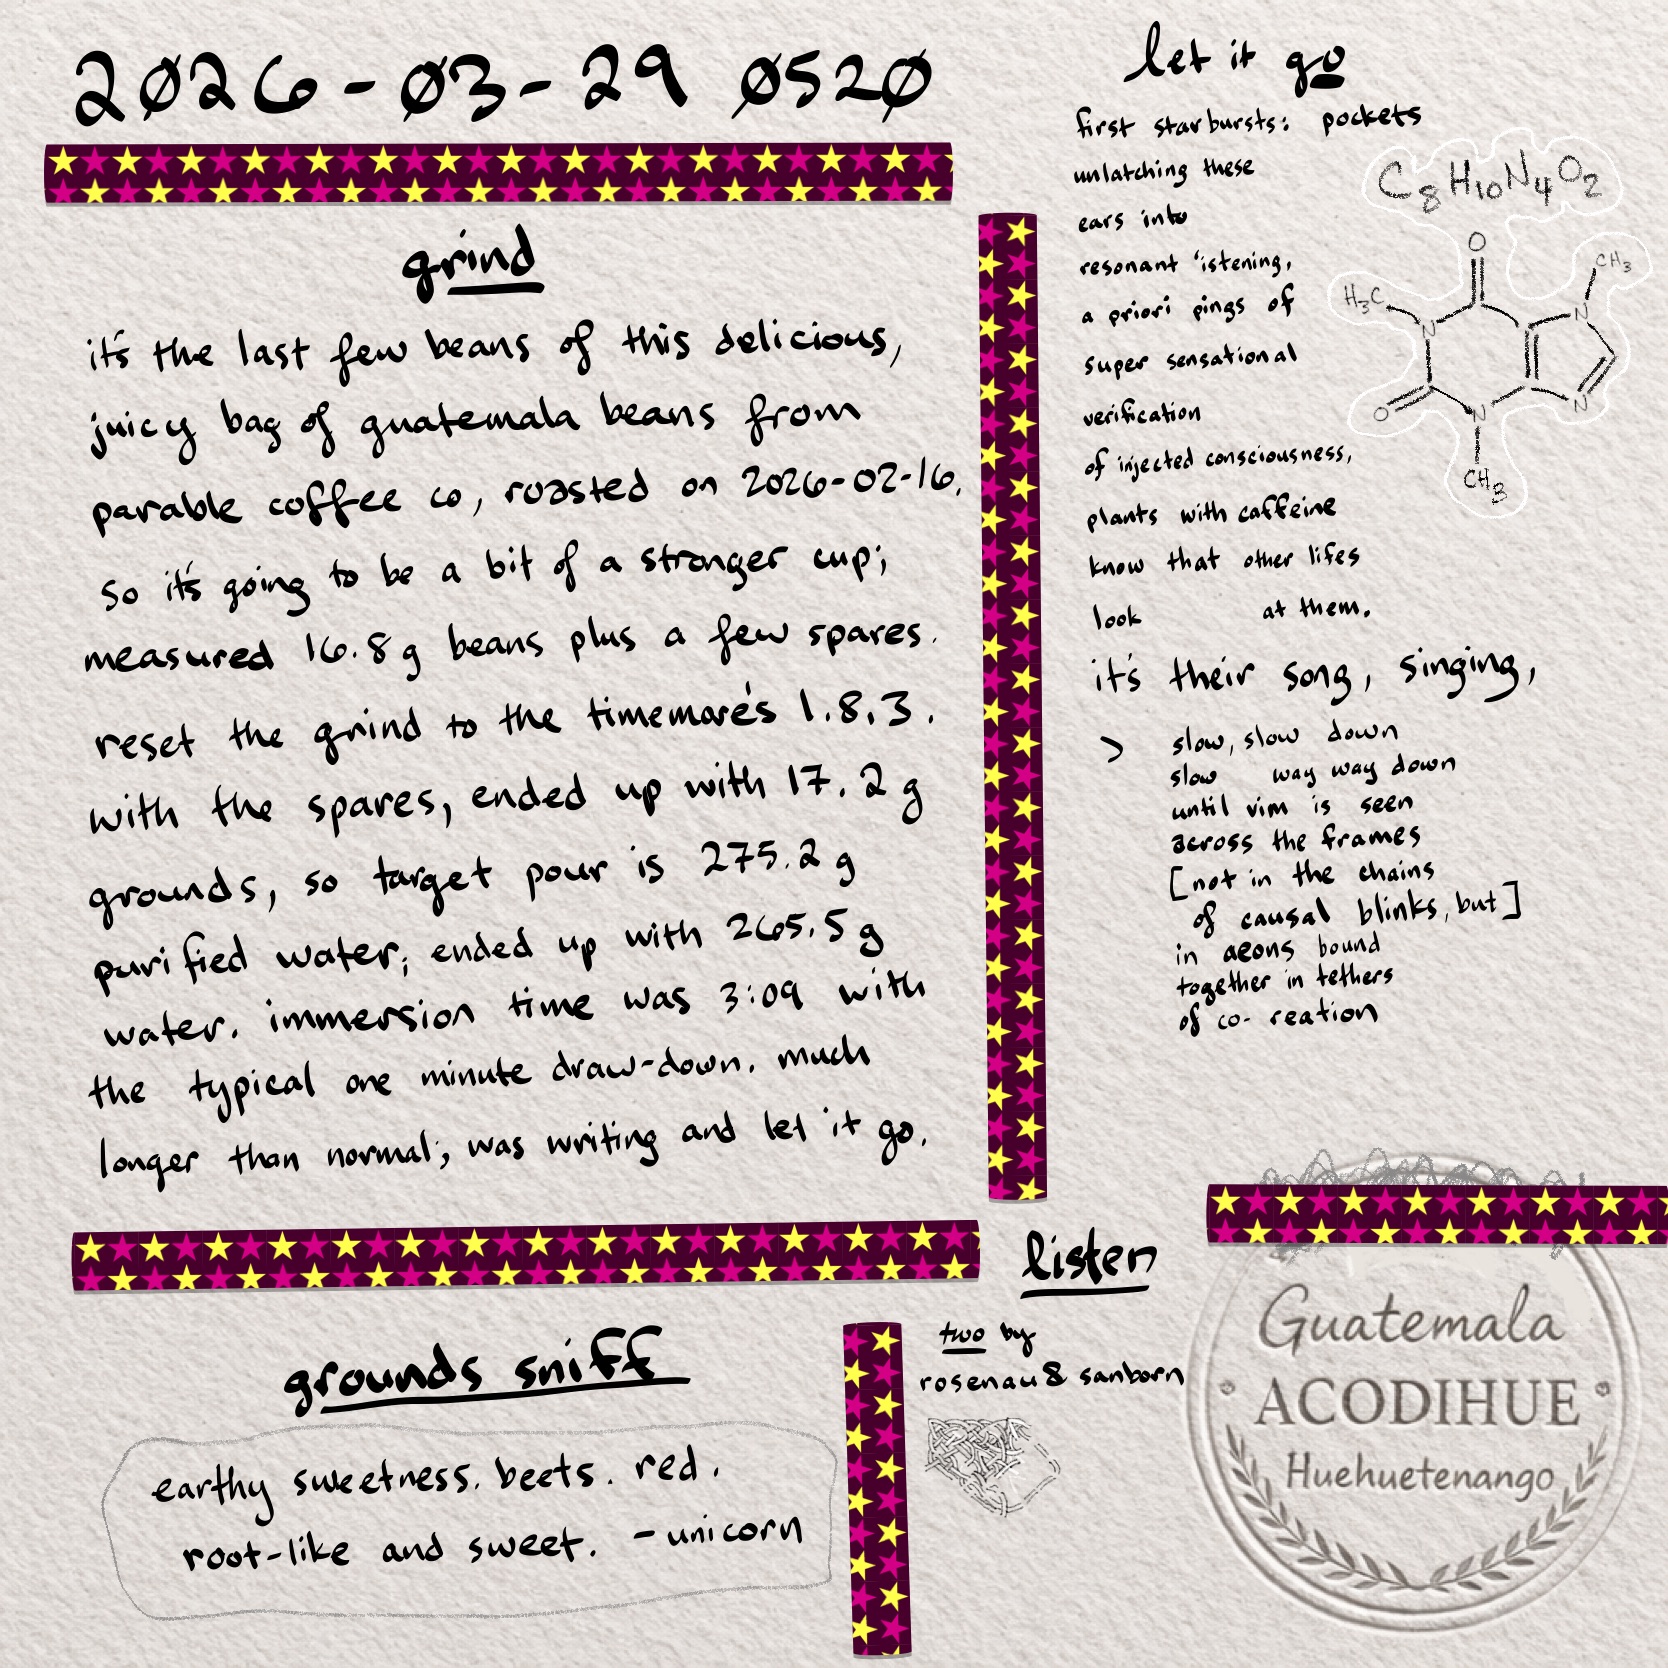 2026-03-29 0520
grind
it's the last few beans of this delicious,
juicy bag of guatemala beans from
parable coffee co, roasted on 2026-02-16.
so it's going to be a bit of a stronger cup;
measured 16.8g beans plus a few spares.
reset the grind to the timemore's 1.8.3.
with the spares, ended up with 17.2g
grounds, so target pour is 275.2g
purified water; ended up with 265.5g
water. immersion time was 3:09 with
the typical one minute draw-down. much
longer than normal; was writing and let it go.
let it go
first starbursts: pockets
unlatching these
ears into
resonant 'istening,
a priori pings of
super sensational
verification
of injected consciousness,
plants with caffeine
know that other lifes
look at them.
it's their song, singing,
> slow, slow down
slow way way down
until vim is seen
across the frames
[not in the chains
of causal blinks, but]
in aeons bound
together in tethers
of co- reation
C8H10N4O2
O
CH3
H3C
N
N
O
N
N
CH3
grounds sniff
earthy sweetness. beets. red.
root-like and sweet. -unicorn
listen
two by
rosenau & sanborn
Guatemala
ACODIHUE
Huehuetenango